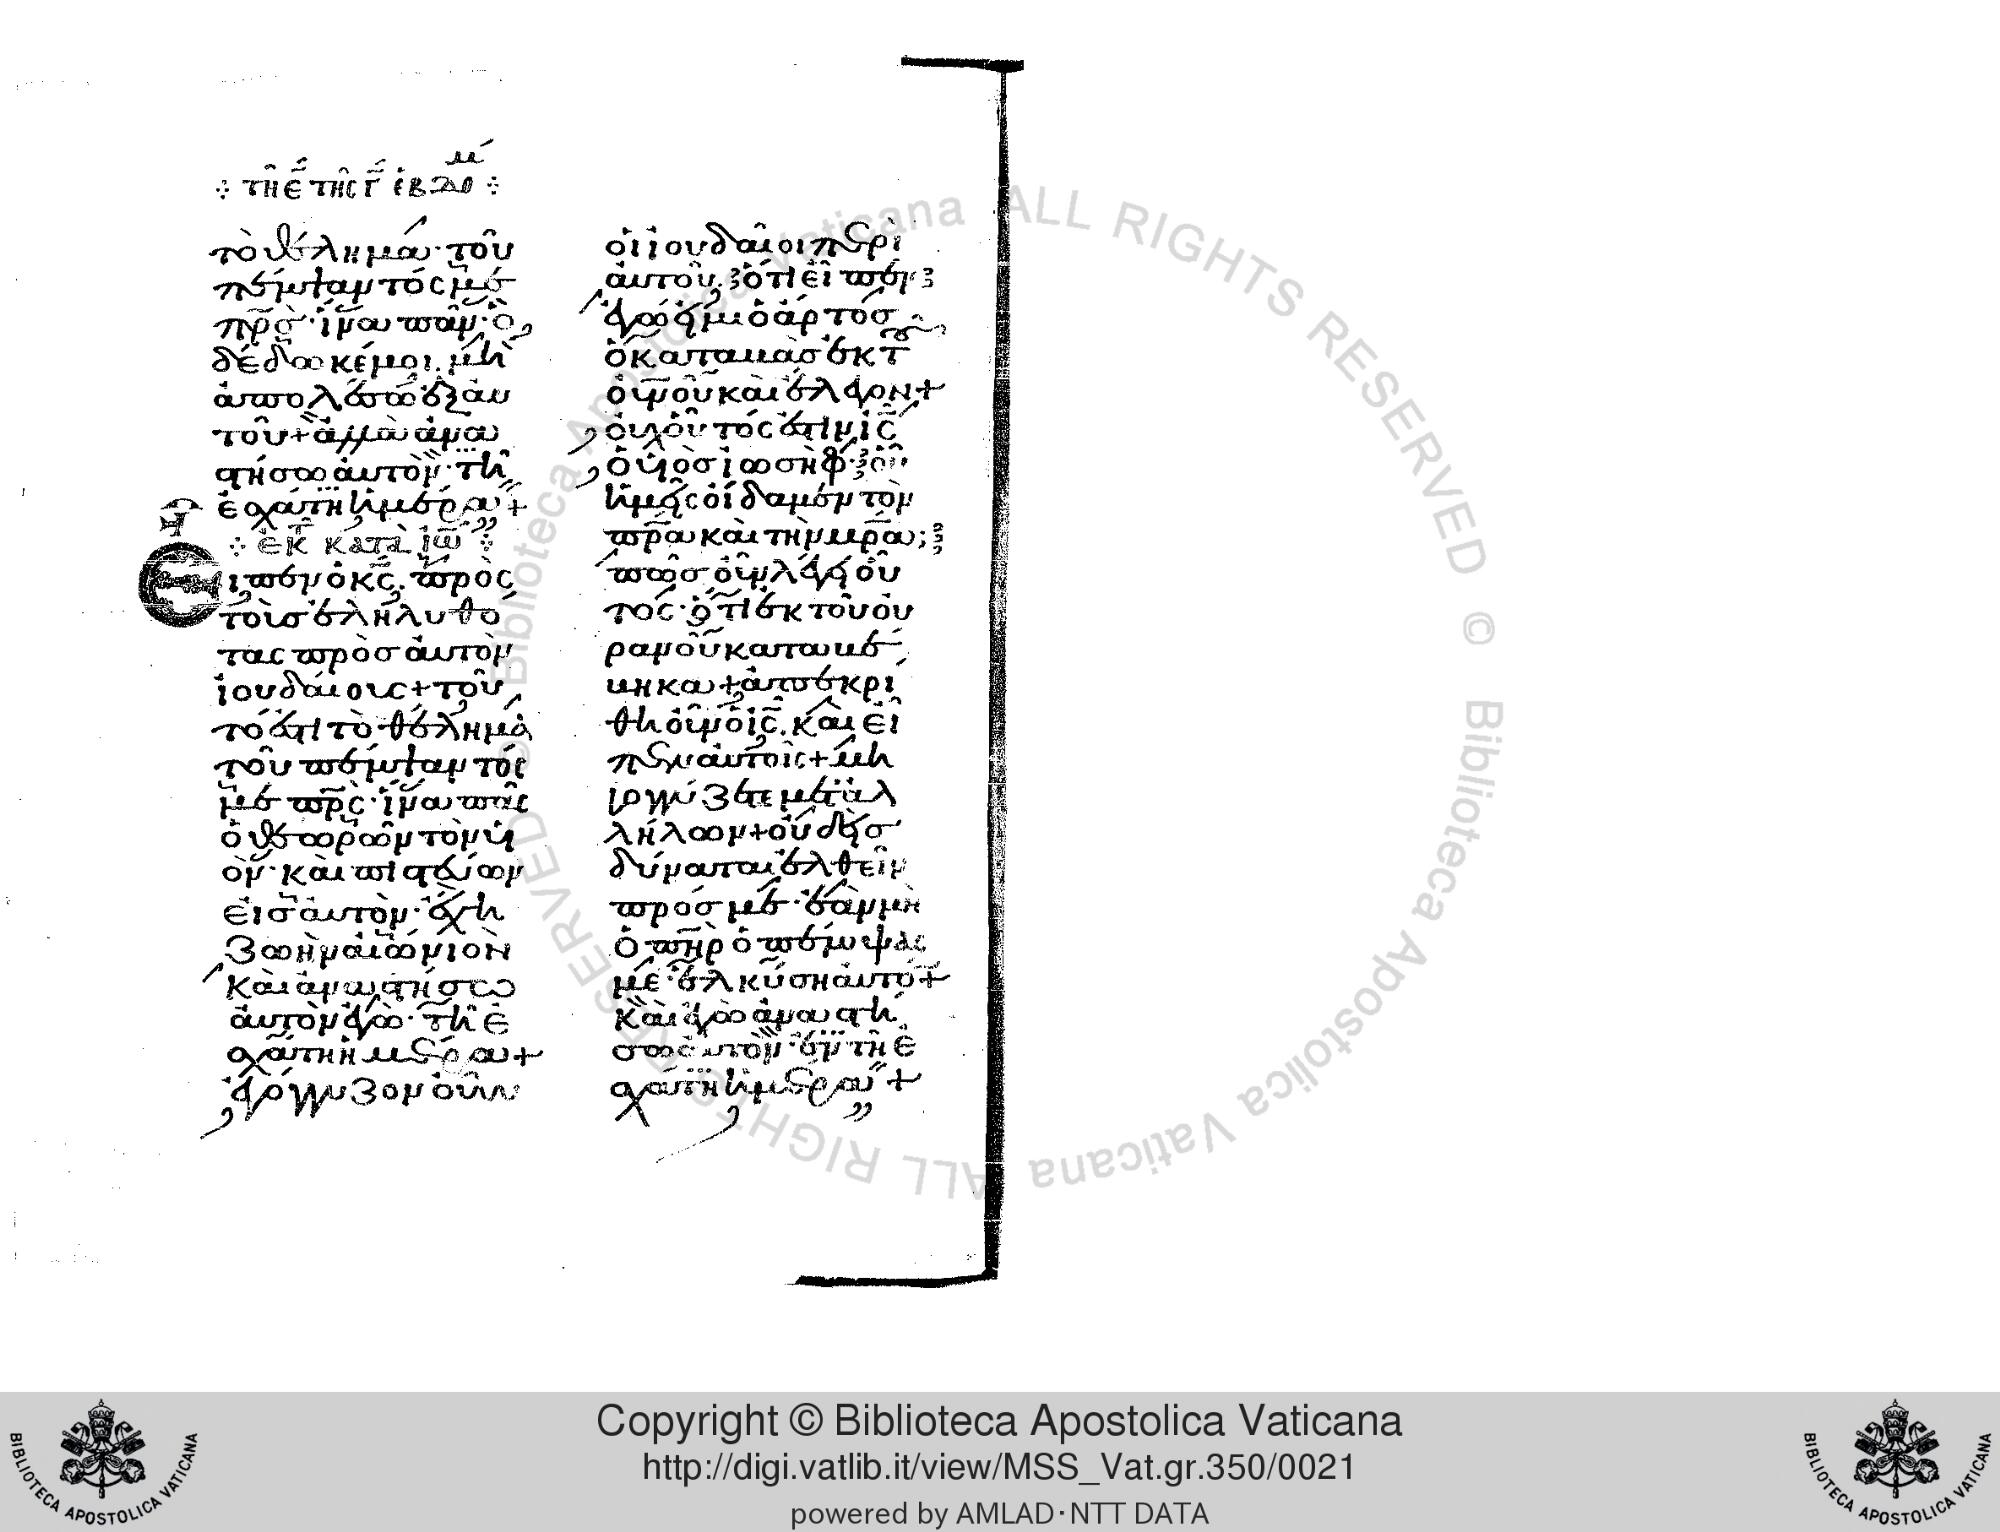 ⁘ τῆ ε̅ τῆς γ̅ ἑβδο μ ⁘
τὸ θέλημα· τοῦ
πέμψαντός με
πρ̅ς· ἵνα πᾶν· ὃ
δέδωκέ μοι. μὴ
ἀπολέσω ἐξ αυ
τοῦ + ἀλλὰ ἀνα
στήσω αὐτὸν· τῆ
ἐσχάτη ἡμέρα +
⁘ ἐκ τ κατὰ ἰω̅ ⁘
Εἶπεν ὁ κ̅ς. πρὸς
τοὺσ ἐληλυθό
τας πρὸσ αὐτὸν
ἰουδαίους + τοῦ
τό ἐστι τὸ θέλημα
τοῦ πέμψαντός
με πρ̅ς· ἵνα πᾶς
ὁ θεωρῶν τὸν υἱ
ὸν· καὶ πιστεύων
εἰσ αὐτὸν· ἔχη
ζωὴν αἰώνιον
καὶ ἀναστήσω
αὐτὸν ἐγὼ· τῆ ἐ
σχάτη ἡμέρα +
ἐγόγγυζον οὖν
οἱ ἰουδαῖοι περὶ
αὐτοῦ. ὅτι εἶπεν
ἐγώ εἰμι ὁ ἄρτοσ
ὁ καταβὰσ ἐκ τοῦ
οὐ̅νοῦ καὶ ἔλεγον +
οὐχ οὗτός ἐστιν ἰ̅ς
ὁ υἱὸσ ἰωσήφ· οὗ
ἡμεῖς οἴδαμεν τὸν
πρ̅α καὶ τὴν μρ̅α;
πῶσ οὖν λέγει οὗ
τος· ὅτι ἐκ τοῦ οὐ
ρανοῦ καταβέ
βηκα + ἀπεκρί
θη οὖν ὁ ἰ̅ς. καὶ εἶ
πεν αὐτοῖς + μὴ
γογγύζετε μετ ἀλ
λήλων + οὐδεὶσ
δύναται ἐλθεῖν
πρός με· ἐὰν μὴ
ὁ πη̅ρ ὁ πέμψας
με· ἑλκύση αὐτὸ +
καὶ ἐγὼ ἀναστή
σω αὐτὸν· ἐν τῆ ἐ
σχάτη ἡμέρα +
Copyright © Biblioteca Apostolica Vaticana
http://digi.vatlib.it/view/MSS_Vat.gr.350/0021
powered by AMLAD·NTT DATA
BIBLIOTECA APOSTOLICA VATICANA
BIBLIOTECA APOSTOLICA VATICANA
© Biblioteca Apostolica Vaticana ALL RIGHTS RESERVED © Biblioteca Apostolica Vaticana ALL RIGHTS RESERVED